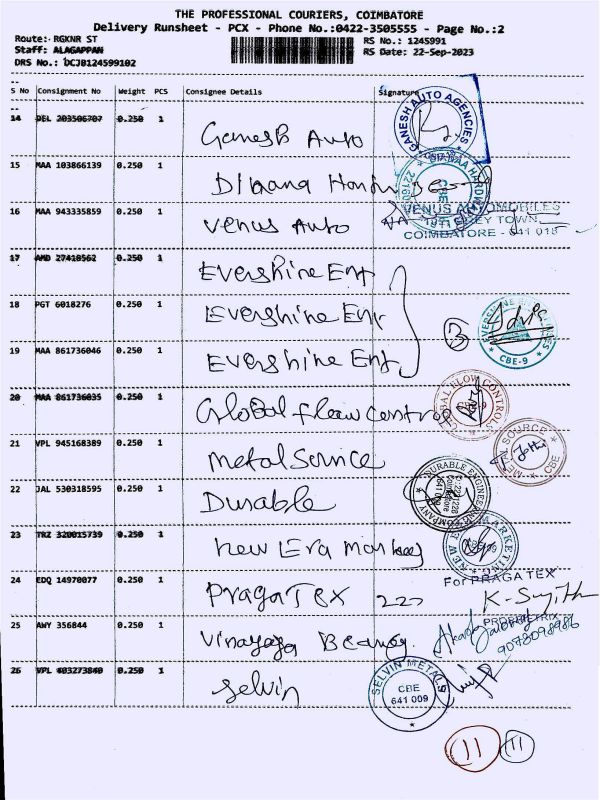 THE PROFESSIONAL COURIERS, COIMBATORE
Delivery Runsheet - PCX - Phone No.:0422-3505555 - Page No.:2
Route:- RGKNR ST
RS No.: 1245991
Staff: ALAGAPPAN
RS Date: 22-Sep-2023
DRS No.: DCJB124599102
S No Consignment No Weight PCS Consignee Details Signature
14 DEL 203506707 0.250 1
Ganesh Auto
GANESH AUTO AGENCIES
15 MAA 103866139 0.250 1
16 MAA 943335859 0.250 1
Venus Auto
VENUS AUTOMOBILES
COIMBATORE - 641 018
17 AMD 27418562 0.250 1
Evershine Ent
18 PGT 6018276 0.250 1
Evershine Ent
3
CBE-9
19 MAA 861736046 0.250 1
Evershine Ent
20 MAA 861736035 0.250 1
Global flow control
GLOBAL FLOW CONTROLS
CBE-9
21 VPL 945168389 0.250 1
Metal Source
METAL SOURCE
CBE
22 JAL 530318595 0.250 1
Durable
DURABLE ENGINEERING COMPANY
23 TRZ 320015739 0.250 1
New Era Marketing
NEW ERA MARKETING
24 EDQ 14970077 0.250 1
Praga Tex 222
For PRAGA TEX
K-Sujith
PROPRIETRIX
25 AWY 356844 0.250 1
Vinayaga
9078098986
26 VPL 403273840 0.250 1
Selvin
SELVIN METALS
CBE
641 009
11 11